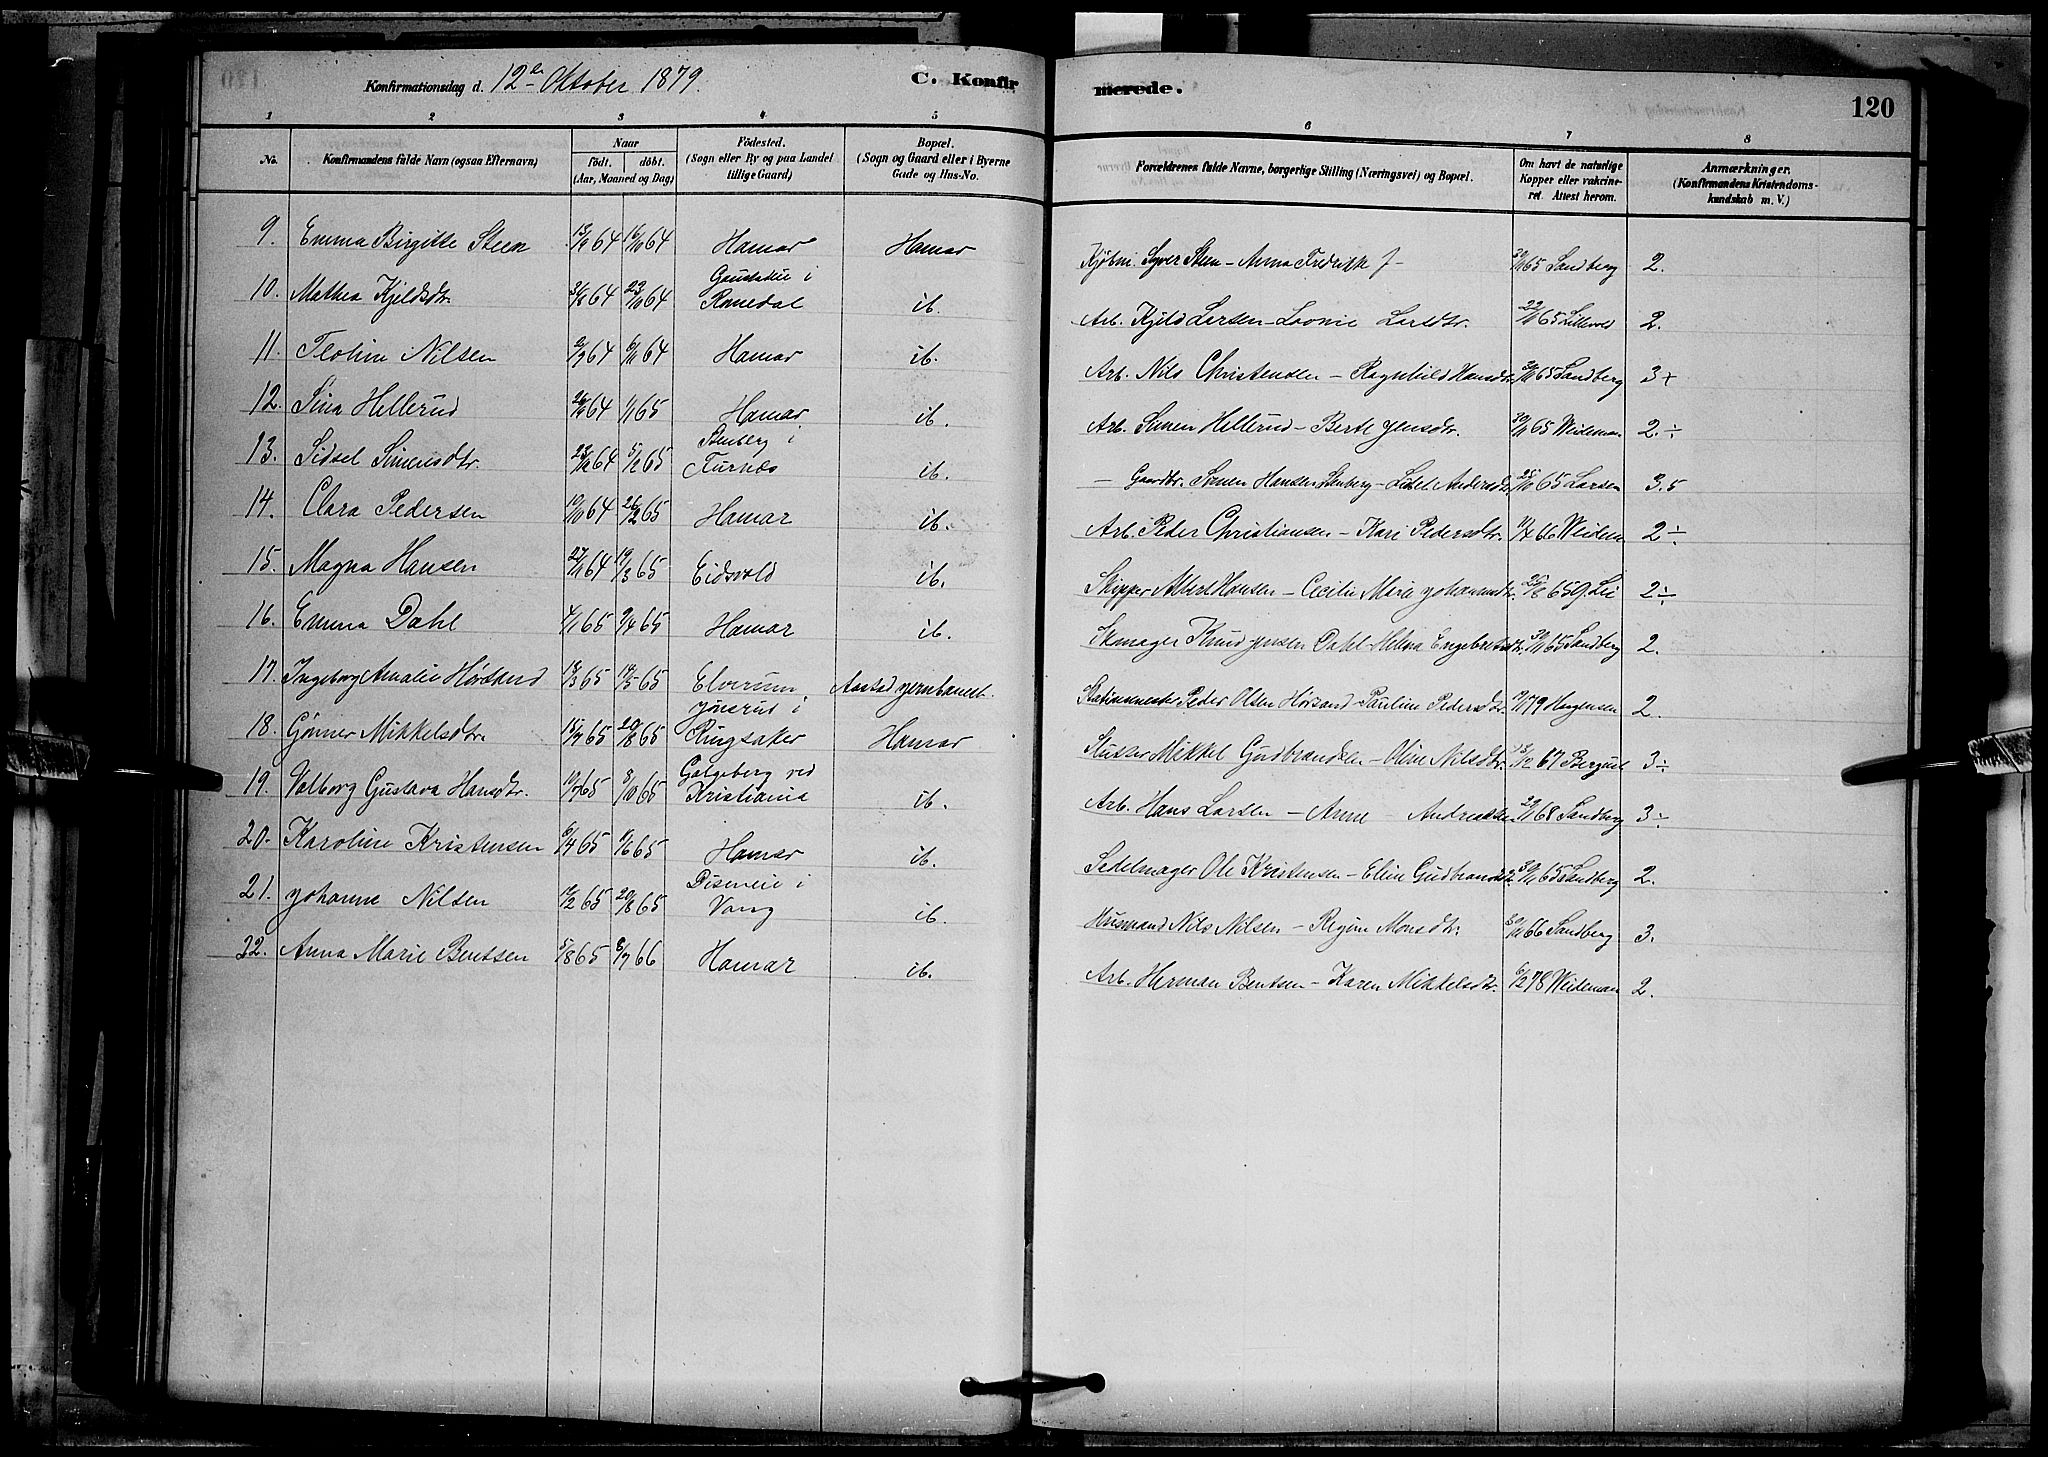 Konfirmationsdag d. 12te Oktober 1879. C. Konfir merede. 120
1 2 3 4 5 6 7 8
No. Konfirmandens fulde Navn (ogsaa Efternavn) Naar født. døbt. (Aar, Maaned og Dag) Fødested. (Sogn eller By og paa Landet tillige Gaard) Bopæl. (Sogn og Gaard eller i Byerne Gade og Hus-No. Forældrenes fulde Navne, borgerlige Stilling (Næringsvei) og Bopæl. Om havt de naturlige Kopper eller vakcineret. Attest herom. Anmærkninger. (Konfirmandens Kristendomskundskab m. V.)
9. Emma Birgitte Steen 13/9 64 16/10 64 Hamar Hamar Kjøbm. Syver Steen - Anna Fredrikke J- 30/11 65 Sandberg 2.
10. Mathea Kjeldsdtr. 3/8 64 23/10 64 i Romedal ib. Arb. Kjeld Larsen - Larsdtr. 22/11 65 2.
11. Nilsen 64 6/11 64 Hamar ib. Arb. Nils Christensen - Ragnhild Hansdtr. 30/11 65 Sandberg 3+
12. Sina Hellerud 64 1/1 65 Hamar. ib. Arb. Simen Hellerud - Berte Jensdtr. 30/11 65 Weideman 2.÷
13. Sidsel Simensdtr. 64 5/2 65 Stenberg i Furnæs ib. - Gaardbr. Simen Hansen Stenberg - Andersdtr. 65 Larsen 3.5
14. Clara Pedersen 19/10 64 26/12 65 Hamar ib. Arb. Peder Christiansen - Kari Pedersdtr. 66 Weidem 2÷
15. Magna Hansen 27/11 64 19/3 65 Eidsvold ib. Skipper Albert Hansen - Cecilie Marie Johannesdtr. 65 G. Lie 2÷
16. Emma Dahl 4/1 65 9/4 65 Hamar ib. Skomager Knud Jensen Dahl - Helena Engebretsdtr. 30/11 65 Sandberg 2.
17. Ingeborg Amalie Hørsand 18/3 65 65 Elverum Aastad Jernbanest. Stationsmester Peder Olsen Hørsand - Pauline Pedersdtr. 79 Hagensen 2.
18. Gunner Mikkelsdtr. 15/7 65 20/8 65 i Ringsaker Hamar Mikkel Gudbrandsen - Oline Nilsdtr. 67 3÷
19. Valborg Gustava Hansdtr. 19/7 65 8/10 65 Galgeberg ved Kristiania ib. Arb. Hans Larsen - Anne Andreasdtr. 68 Sandberg 3÷
20. Karoline Kristensen 6/4 65 65 Hamar ib. Sedelmager Ole Kristensen - Eline Gudbrandsdtr. 30/11 65 Sandberg 2.
21. Johanne Nilsen 65 20/8 65 i Vang ib. Husmand Nils Nilsen - Regine Monsdtr. 30/11 66 Sandberg 3.
22. Anna Marie Bentsen 5/8 65 8/7 66 Hamar ib. Arb. Herman Bentsen - Karen Mikkelsdtr. 6/2 78 Weideman 2.